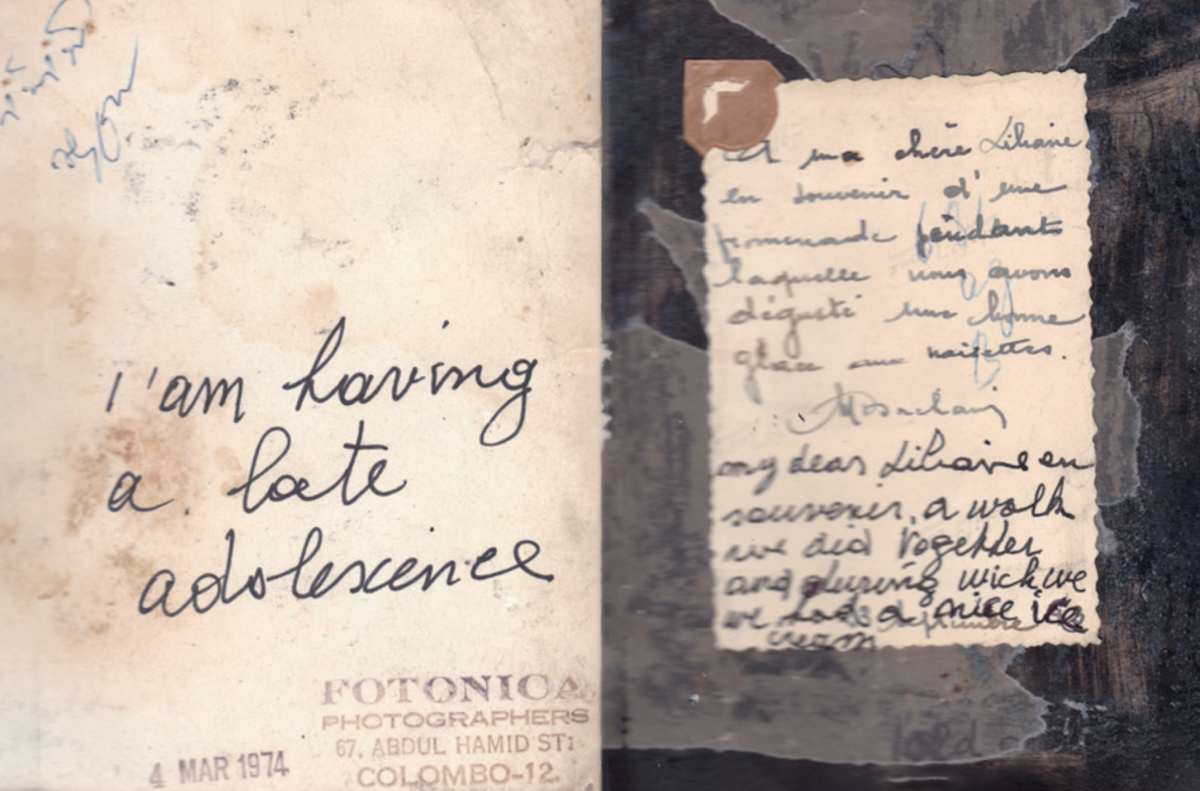 I'am having
a late
adolescence
FOTONICA
PHOTOGRAPHERS
67, ABDUL HAMID ST:
COLOMBO-12.
4 MAR 1974
A ma chère Liliane
en souvenir d'une
promenade pendant
laquelle nous avons
dégusté une bonne
glace aux noisettes.
my dear Liliane en
souvenir, a walk
we did together
and during wich we
we had a nice ice
cream